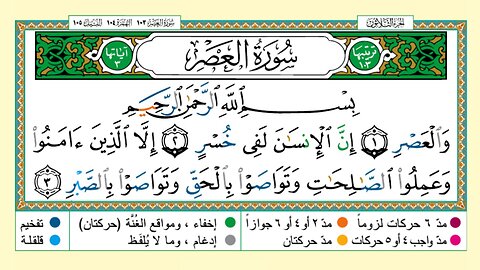 الجزء الثلاثون
سورة العصر ١٠٣ الهمزة ١٠٤ الفيل ١٠٥
ترتيبها ١٠٣
سُورَةُ العَصْرِ
آياتها ٣
بِسْمِ اللَّهِ الرَّحْمَٰنِ الرَّحِيمِ
وَالْعَصْرِ ١ إِنَّ الْإِنسَٰنَ لَفِى خُسْرٍ ٢ إِلَّا الَّذِينَ ءَامَنُوا
وَعَمِلُوا الصَّٰلِحَٰتِ وَتَوَاصَوْا بِالْحَقِّ وَتَوَاصَوْا بِالصَّبْرِ ٣
مدّ ٦ حركات لزوماً مدّ ٢ أو ٤ أو ٦ جوازاً إخفاء ، ومواقع الغُنَّة (حركتان) تفخيم
مدّ واجب ٤ أو ٥ حركات مدّ حركتان إدغام ، وما لا يُلفَظ قلقلة